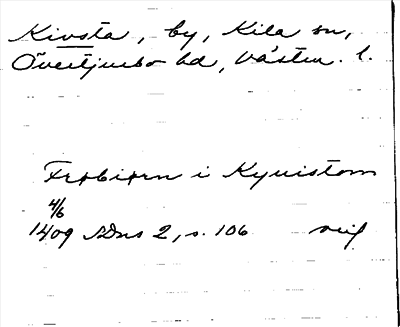 Kivsta, by, Kila sn,
Övertjurbo hd, Västm. l.
Frøbiørn i Kyuistom
4/6
1409 SDns 2, s. 106